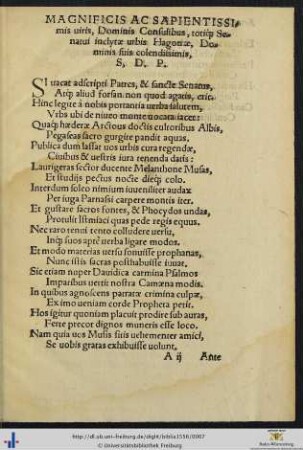 MAGNIFICIS AC SAPIENTISSI-
mis uiris, Dominis Consulibus, totiꝗ Se-
natui inclytæ urbis Hagonæ, Do-
minis suis colendissimis,
S. D. P.
SI uacat adscripti Patres, & sancte Senatus,
Atꝗ aliud forsan non quod agatis, erit:
Hinc legite à nobis portantia uerba salutem,
Vrbs ubi de niueo monte uocata iacet:
Quaꝗ hæderæ Arctous doctis cultoribus Albis,
Pegaseas sacro gurgite pandit aquas.
Publica dum lassat uos urbis cura regendæ,
Ciuibus & uestris iura tenenda datis:
Laurigeras sector ducente Melanthone Musas,
Et studijs pectus nocte dieꝗ colo.
Interdum soleo nimium iuueniliter audax
Per iuga Parnasi carpere montis iter.
Et gustare sacros fontes, & Phocydos undas,
Protulit Isthmiaci quas pede uegis equus.
Nec raro tenui tento colludere uersu,
Inꝗ suos apte uerba ligare modos.
Et modo materias uersu sonuisse prophanas,
Nunc istis sacras posthabuisse iuuat.
Sic etiam nuper Dauidica carmina Psalmos
Imparibus uertit nostra Camœna modis.
In quibus agnoscens patratæ crimina culpæ,
Ex imo ueniam corde Propheta petit.
Hos igitur quoniam placuit prodire sub auras,
Ferre precor dignos muneris esse loco.
Nam quia uos Musis sitis uehementer amici,
Se uobis gratas exhibuisse uolunt,
A ij Ante
http://dl.ub.uni-freiburg.de/diglit/biblia1556/0007
© Universitätsbibliothek Freiburg
Baden-Württemberg